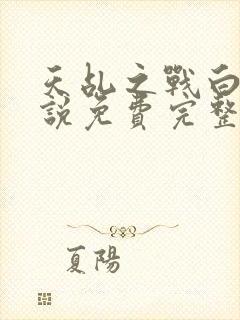 天乱之戰白
說免費完整
夏陽